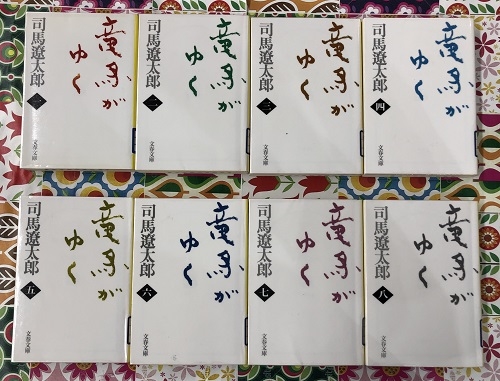 竜馬が
ゆく
司馬遼太郎
一
文春文庫
竜馬が
ゆく
司馬遼太郎
二
文春文庫
竜馬が
ゆく
司馬遼太郎
三
文春文庫
竜馬が
ゆく
司馬遼太郎
四
文春文庫
竜馬が
ゆく
司馬遼太郎
五
文春文庫
竜馬が
ゆく
司馬遼太郎
六
文春文庫
竜馬が
ゆく
司馬遼太郎
七
文春文庫
竜馬が
ゆく
司馬遼太郎
八
文春文庫